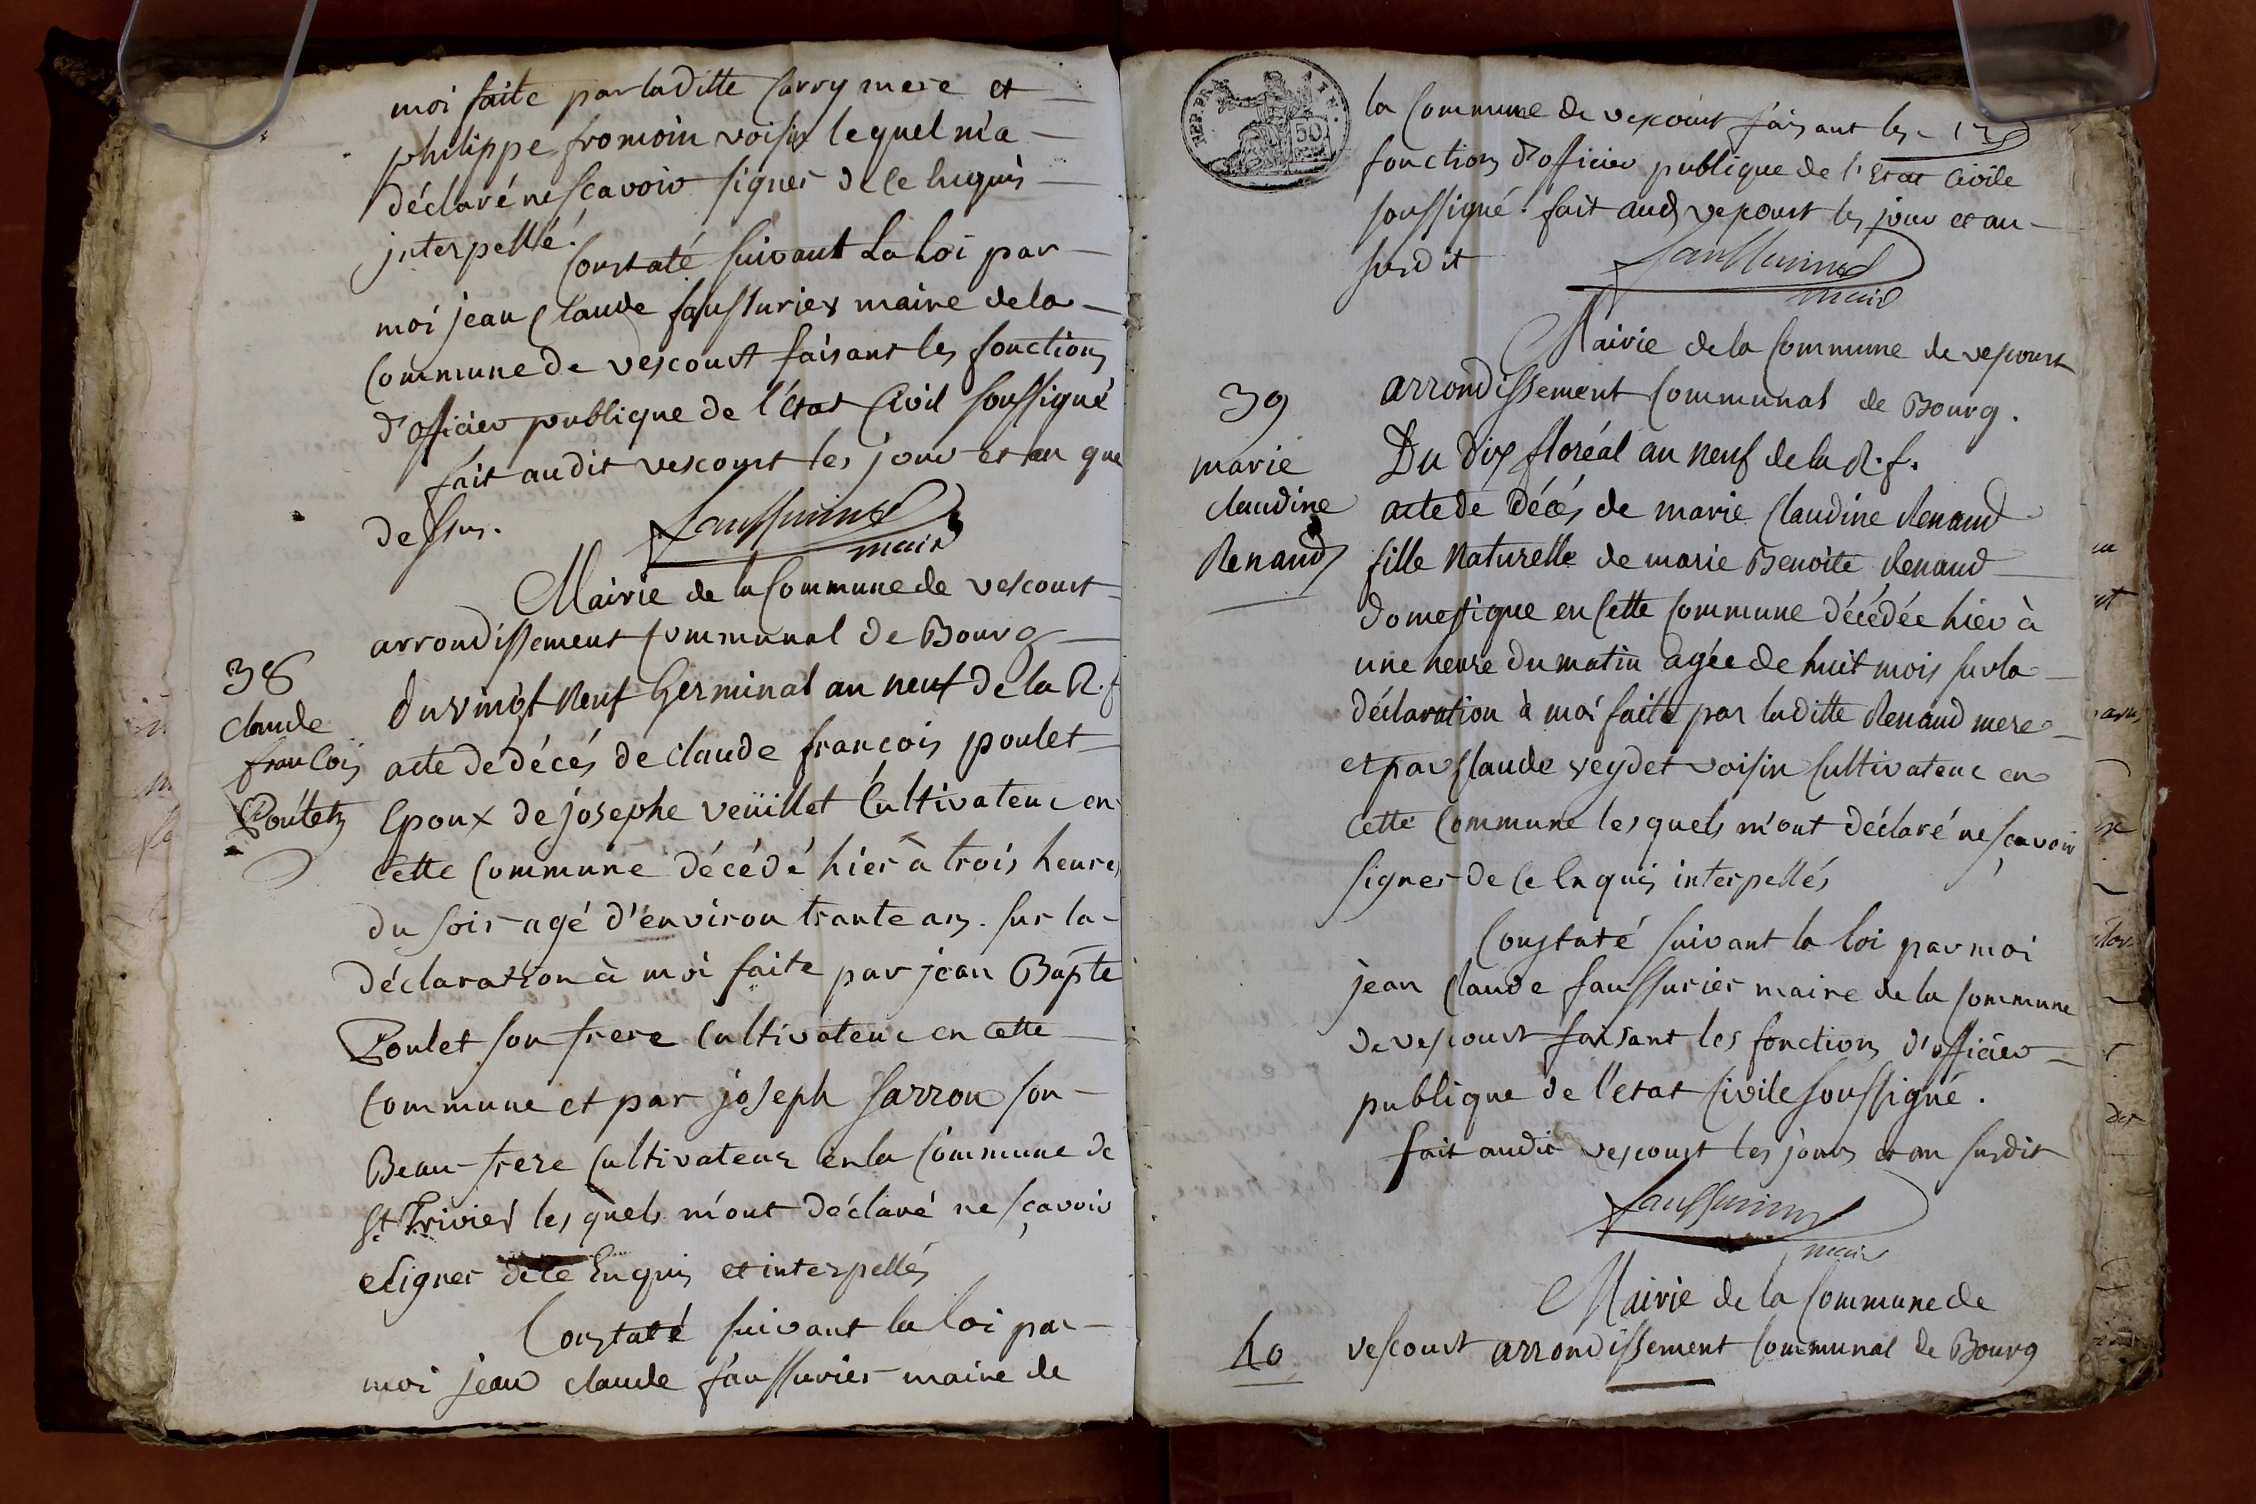 moi faite par laditte Carry mere et
philippe fromoin voisin lequel m'a
déclaré ne scavoir signer de ce enquis
interpellé.
Constaté suivant La Loi par
moi jean Claude faussurier maire de la
Commune de vescourt faisant les fonctions
d'officier publique de l'état Civil soussigné
fait audit vescourt les jour et an que
dessus.
faussurier
maire
Mairie de la Commune de vescourt
arrondissement Communal de Bourg
38
Claude
francois
Poulet
du vingt neuf Germinal an neuf de la R. f
acte de décés de claude françois poulet
Epoux de josephe veüillet Cultivateur en
cette Commune décédé hier à trois heures
du soir agé d'environ trante ans. sur la
déclaration à moi faite par jean Bapte
Poulet son frere Cultivateur en cette
Commune et par joseph sarron son
Beau-frere Cultivateur en la Commune de
St Trivier les quels m'ont déclaré ne sçavoir
signer de ce Enquis et interpellés
Constaté suivant la loi par
moi jean claude faussurier maire de
REP. FRA
50
la Commune de vescourt faisant les
fonctions d'officier publique de l'Etat Civile
soussigné. fait aud vescourt les jour et an
susdit
faussurier
maire
Mairie de la Commune de vescourt
arrondissement Communal de Bourg.
39
marie
claudine
Renaud
Du dix floréal an neuf de la R. f.
acte de décés de marie Claudine Renaud
fille Naturelle de marie Benoite Renaud
domestique en Cette Commune décédée hier à
une heure du matin agée de huit mois sur la
déclaration à moi faite par laditte Renaud mere
et par Claude veydet voisin Cultivateur en
cette Commune les quels m'ont déclaré ne sçavoir
signer de ce Enquis interpellés
Constaté suivant la loi par moi
jean Claude faussurier maire de la Commune
de vescourt faisant les fonctions d'officier
publique de l'etat Civile soussigné.
fait audit vescourt les jours et an susdit
faussurier
maire
Mairie de la Commune de
40
vescourt arrondissement Communal de Bourg